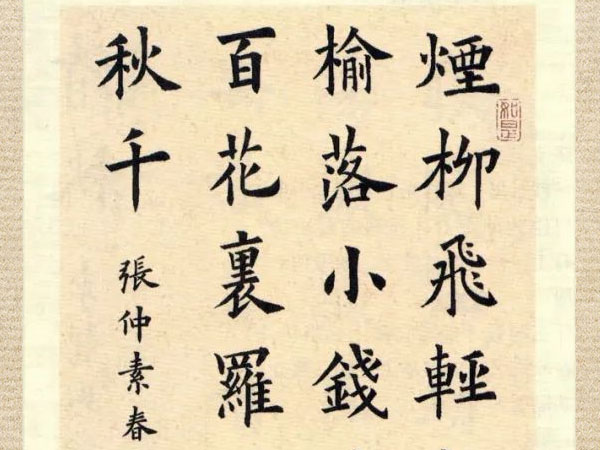 如是
煙柳飛輕
榆落小錢
百花裏羅
秋千
張仲素春